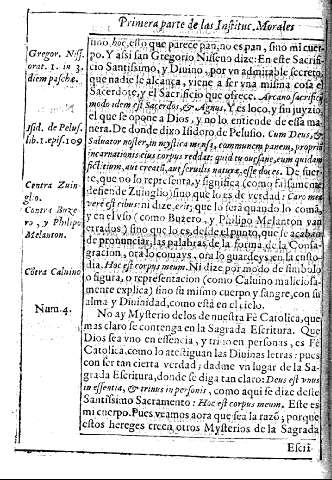 Primera parte de las Instituc. Morales
Gregor. Niss.
orat. 1. in 3.
diem paschæ.
Isid. de Pelus.
lib. 1. epis. 109
Contra Zuin-
glio.
Contra Buze-
ro, y Philipo
Melanton.
Cõtra Caluino
Num. 4.
uino hoc, esto que parece pan, no es pan, sino mi cuer-
po. Y assi san Gregorio Nisseno dize: En este Sacrifi-
cio Santissimo, y Diuino, por vn admirable secreto,
que nadie le alcança, viene a ser vna misma cosa el
Sacerdote, y el Sacrificio que ofrece. Arcano sacrificij
modo idem est Sacerdos, & Agnus. Y es loco, y sin juyzio
el que se opone a Dios, y no lo entiende de essa ma-
nera. De donde dixo Isidoro de Pelusio. Cum Deus, &
Saluator noster, in mystica mensa, communem panem, proprij
incarnationis eius corpus reddat: quid eu ousane, eum quidam
fictitium, aut creatũ, aut serulis natura, esse doces. De suer-
te, que no lo representa, y significa (como falsamente
defiende Zuinglio) sino que lo es de verdad: Caro mea
verè est cibus: ni dize, eris; que lo serà quando lo coma,
y en el vso (como Buzero, y Philipo Melanton van
errados) sino que lo es, desde el punto, que se acabaron
de pronunciar, las palabras de la forma de la Consa-
gracion, ora lo comays, ora lo guardeys, en la custo-
dia. Hoc est corpus meum. Ni dize por modo de simbolo
o figura, o representacion (como Caluino maliciosa-
mente explica) sino su mismo cuerpo y sangre, con su
alma y Diuinidad, como està en el cielo.
No ay Mysterio de los de nuestra Fè Catolica, que
mas claro se contenga en la Sagrada Escritura. Que
Dios sea vno en essencia, y trino en personas, es Fè
Catolica, como lo atestiguan las Diuinas letras: pues
con ser tan cierta verdad; dadme vn lugar de la Sa-
grada Escritura, donde se diga tan claro: Deus est vnus
in essentia, & trinus in personis, como aqui se dize deste
Santissimo Sacramento: Hoc est corpus meum. Este es
mi cuerpo. Pues veamos aora que sea la razõ; porque
estos hereges creen otros Mysterios de la Sagrada
Escri-